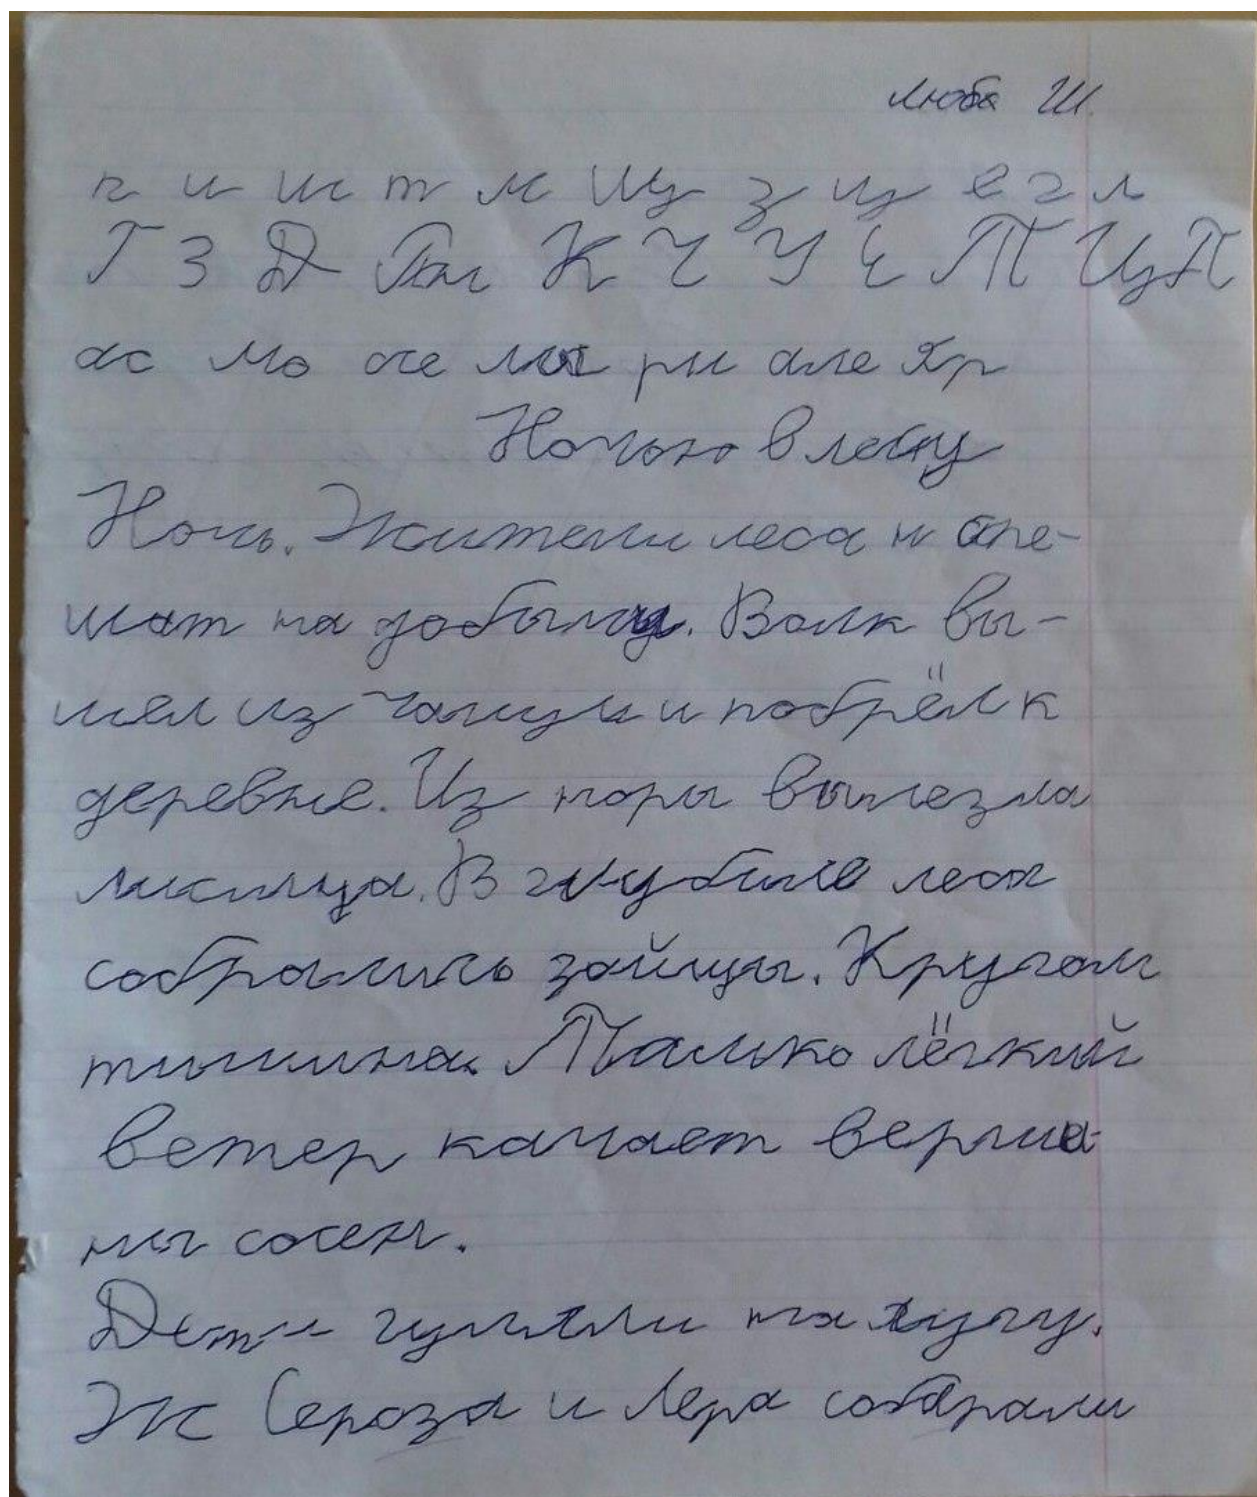 Люба Ш.
ч и ш т м Щ з щ е г л
Г З Д Ры К Ч У Е Т Щ П
ас мо осе мы ри але Яр
Ночью в лесу
Ночь. Жители леса н спе-
шат на добычу. Волк вы-
шел из чащи и побрёл к
деревне. Из норы вылезла
лисица. В глубине леса
собрались зайцы. Кругом
тишина. Только лёгкий
ветер качает верши-
ны сосен.
Дети гуляли на лугу.
Ж Сероза и Лера собрали